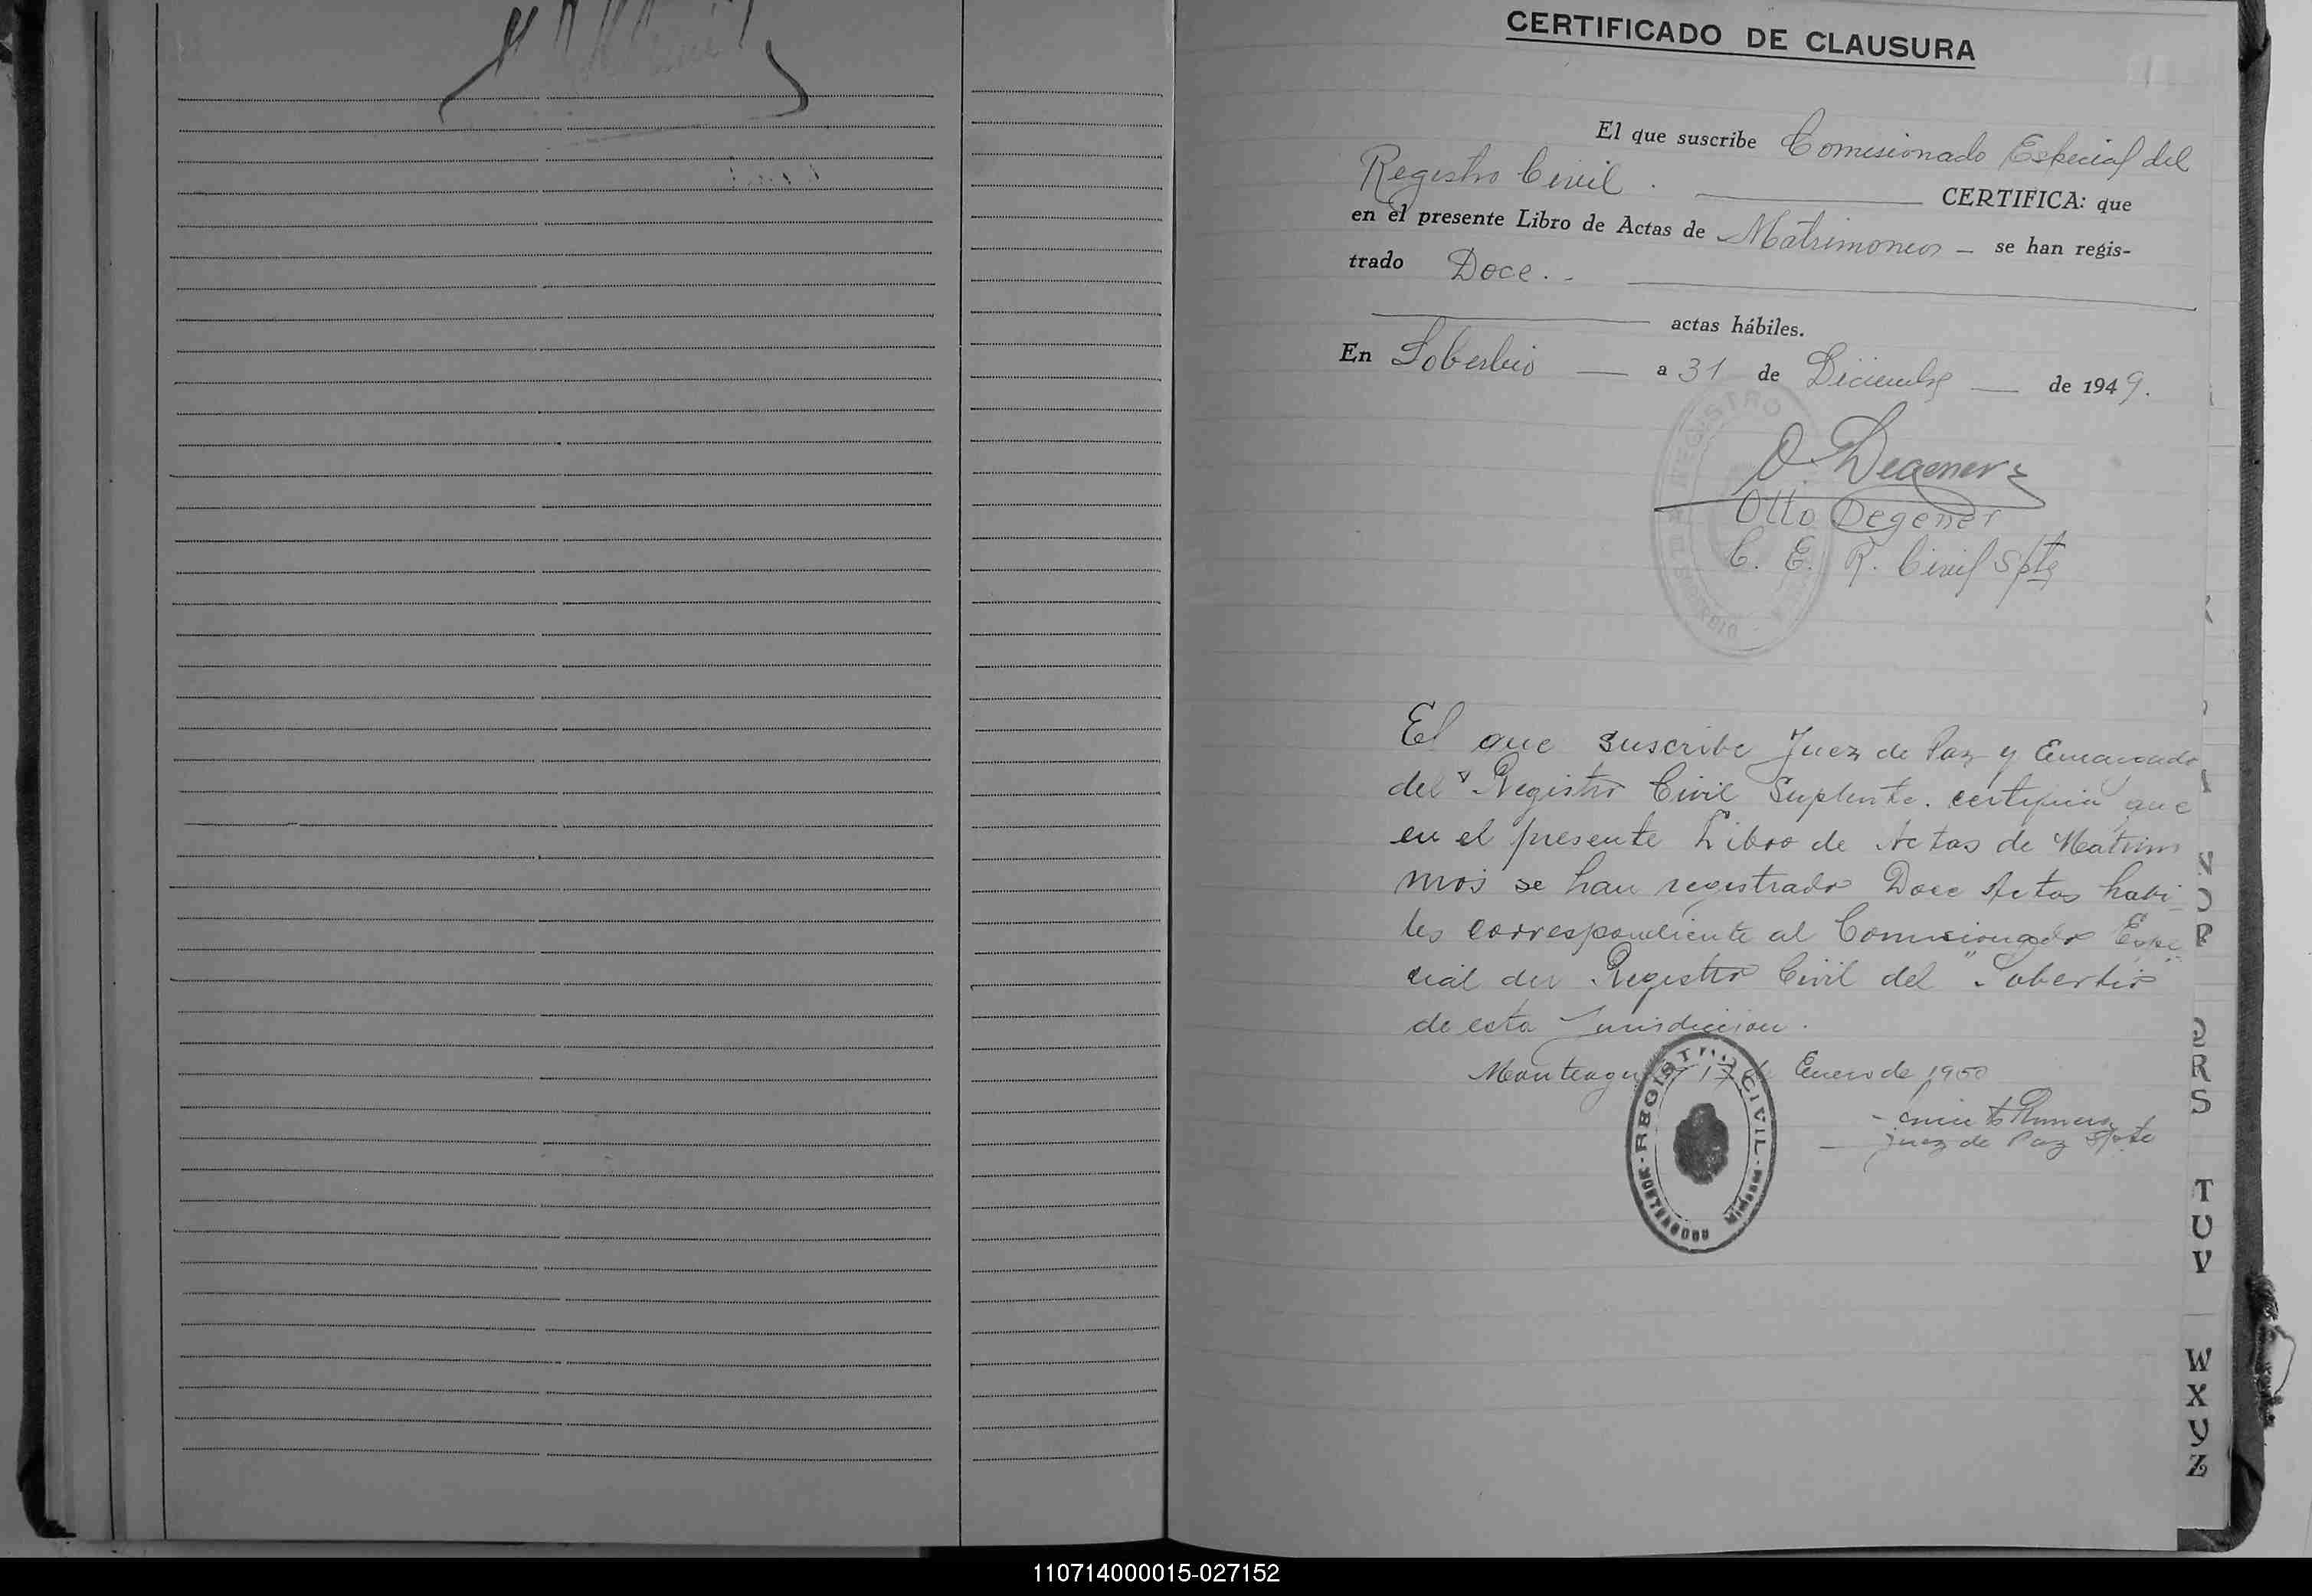 CERTIFICADO DE CLAUSURA
El que suscribe Comisionado Especial del
Registro Civil. CERTIFICA: que
en el presente Libro de Actas de Matrimonios — se han regis-
trado Doce. -
actas hábiles.
En Soberbio — a 31 de Diciembre — de 1949.
O. Degener
Otto Degener
C. E. R. Civil Spte
REGISTRO
El que suscribe Juez de Paz y Encargado
del Registro Civil Suplente. certifica que
en el presente Libro de Actas de Matrimo
nios se han registrado Doce Actas habi-
les correspondiente al Comisionado Espe
cial del Registro Civil del "Soberbio"
de esta Jurisdiccion.
Monteagudo 17 Enero de 1950
Juez de Paz Spte
REGISTRO CIVIL
MONTEAGUDO MISIONES
N
O
P
Q
R
S
T
U
V
W
X
Y
Z
110714000015-027152